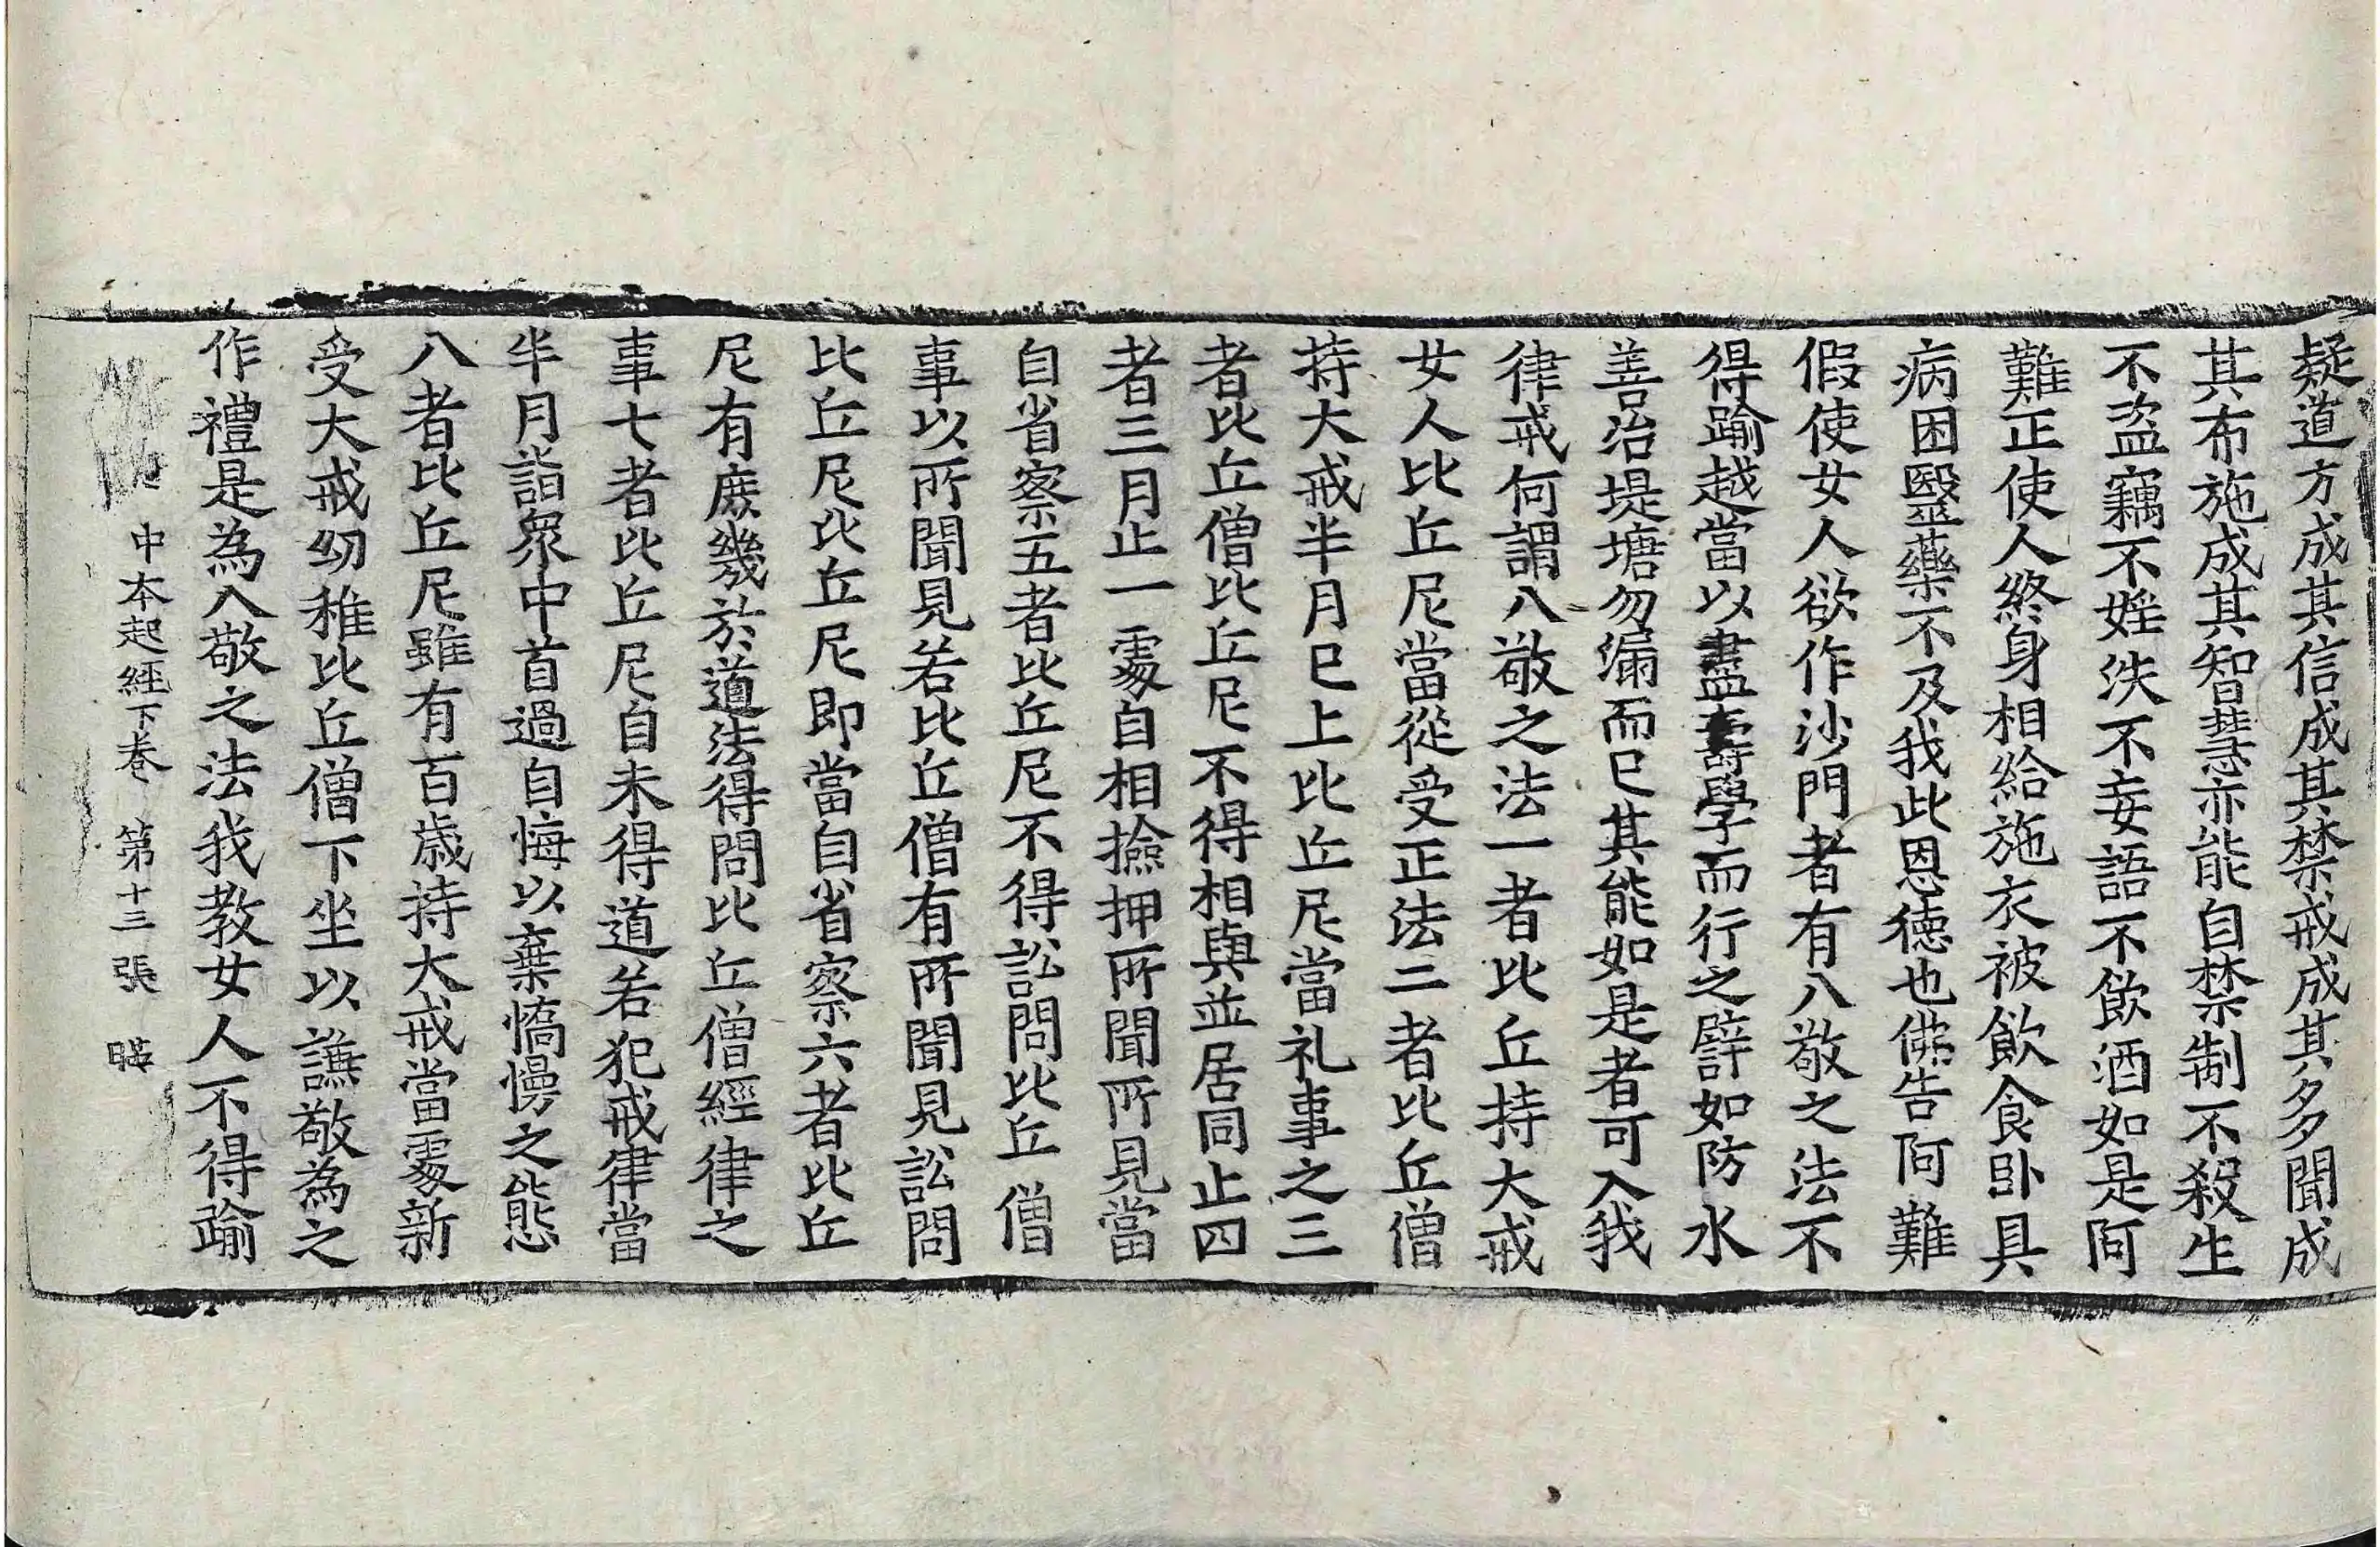 疑道方成其信成其禁戒成其多聞成
其布施成其智慧亦能自禁制不殺生
不盜竊不婬泆不妄語不飮酒如是阿
難正使人終身相給施衣被飮食卧具
病困毉藥不及我此恩徳也佛告阿難
假使女人欲作沙門者有八敬之法不
得踰越當以盡壽學而行之譬如防水
善治堤塘勿漏而已其能如是者可入我
律戒何謂八敬之法一者比丘持大戒
女人比丘尼當從受正法二者比丘僧
持大戒半月已上比丘尼當礼事之三
者比丘僧比丘尼不得相與並居同止四
者三月止一處自相撿押所聞所見當
自省察五者比丘尼不得訟問比丘僧
事以所聞見若比丘僧有所聞見訟問
比丘尼比丘尼即當自省察六者比丘
尼有庶幾於道法得問比丘僧經律之
事七者比丘尼自未得道若犯戒律當
半月詣衆中首過自悔以棄憍慢之態
八者比丘尼雖有百歲持大戒當處新
受大戒幼稚比丘僧下坐以謙敬為之
作禮是為八敬之法我教女人不得踰
中本起經下卷 第十三張